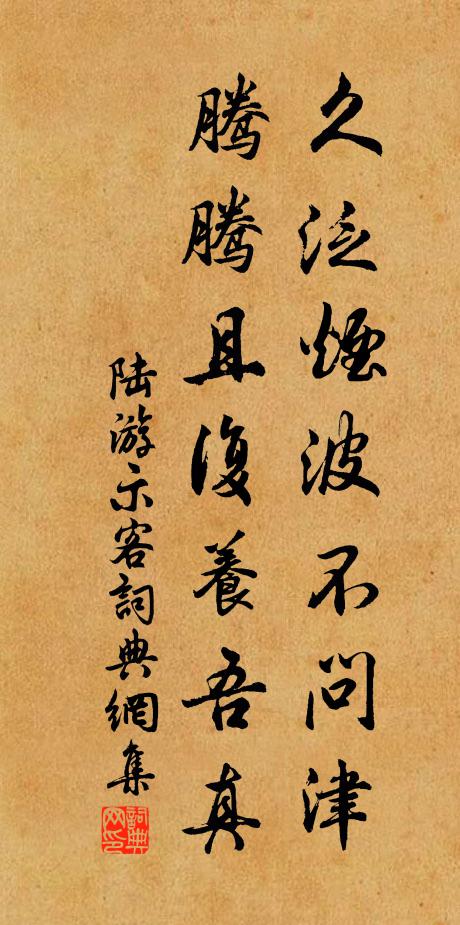 久泛煙波不問津
騰騰且復養吾真
陆游示客詞典網集
詞典网印